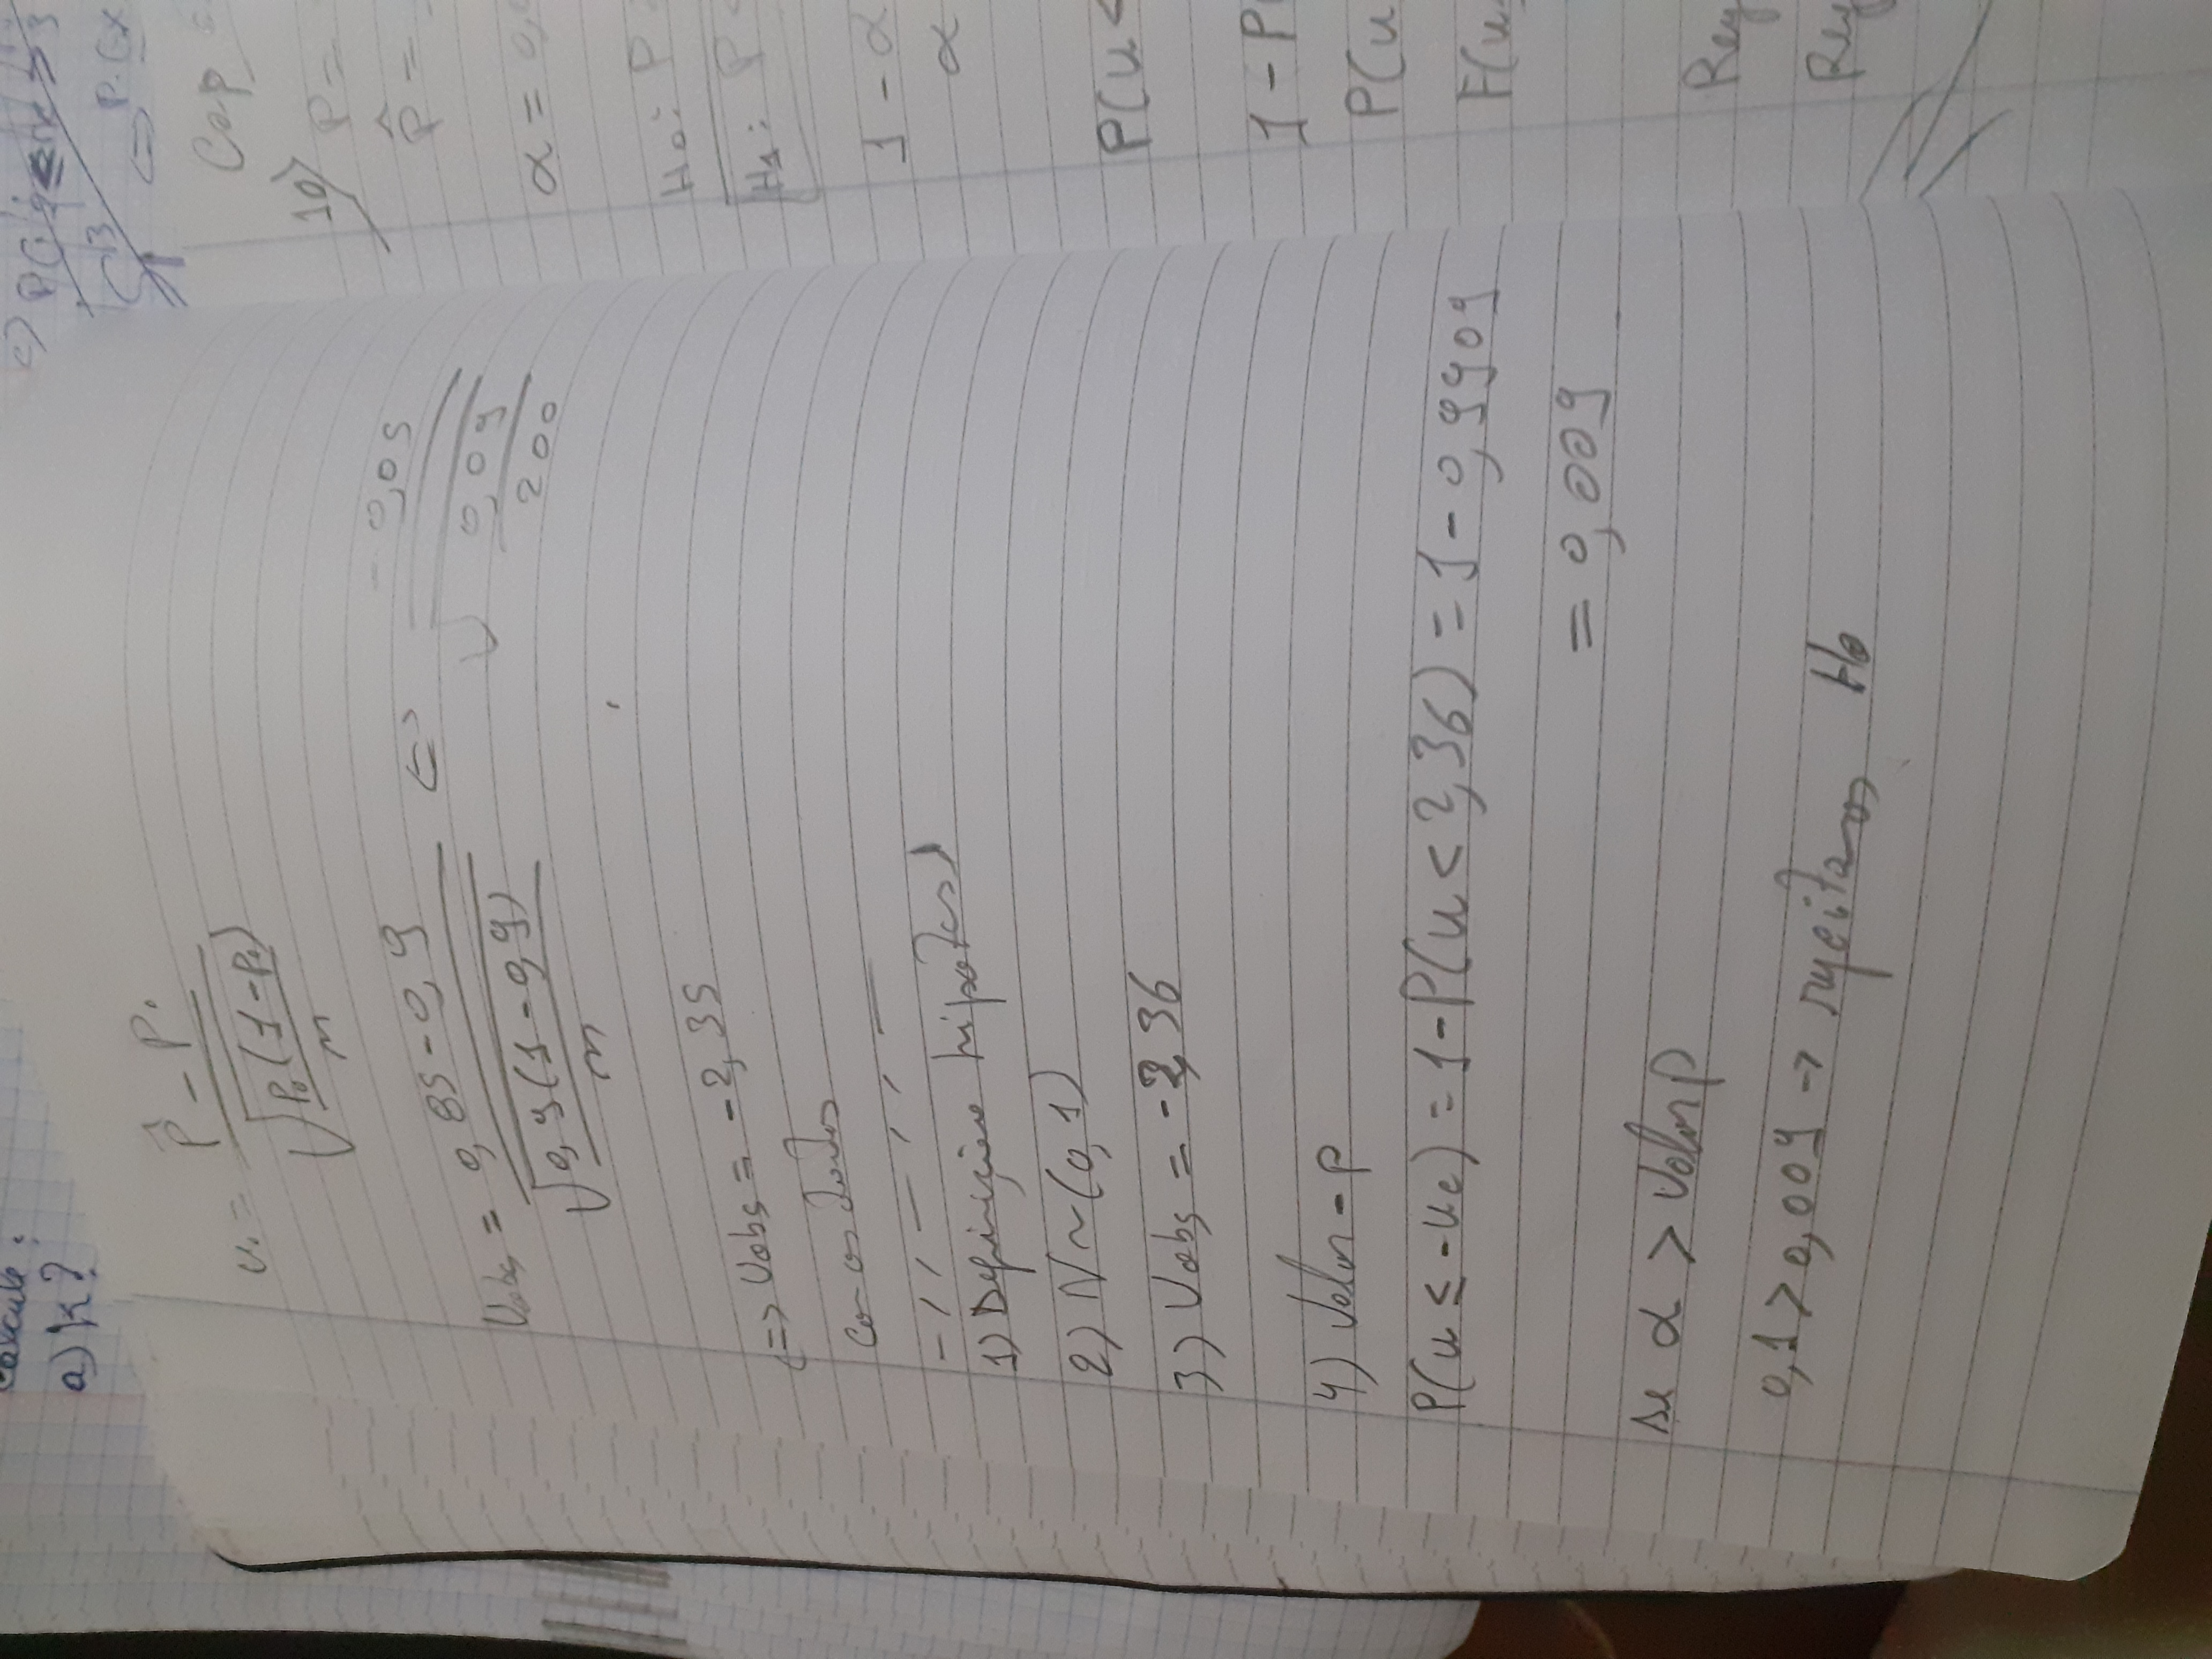 Calcule:
a) k?
û. = (P̂ - P.) / √(P₀(1-P₀)/n)
Uobs = (0,85-0,9) / √(0,9(1-0,9)/n) <=> (-0,05) / √(0,09/200)
<=> Uobs = -2,35
Com os dados
1) Definição hipoteses
2) N~(0,1)
3) Uobs = -2,36
4) Valor-p
P(u ≤ -uc) = 1-P(u < 2,36) = 1-0,9909
= 0,009
se α > Valor p
0,1 > 0,009 -> rejeitamos H0
c)
P(x
Cap
10)
P =
P̂ =
α = 0,
H0: P
H1: P <
1 - α
α
P(u <
1 - P(
P(u
F(u
Reg
Reg